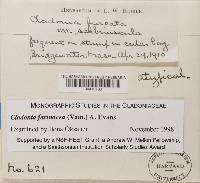 Cladonia furcata
var. scabriuscula
frequent on stump in cedar bog
Bridgewater, Mass. Apr. 24, 1910
atypical.
MONOGRAPHIC STUDIES IN THE CLADONIACEAE
Cladonia farinacea (Vain.) A. Evans
Examined by Ilona November 1998
Supported by a NSF-PEET Grant, a Andrew W. Mellon Fellowship,
and a Smithsonian Institution Scholarly Studies Award
no. 621